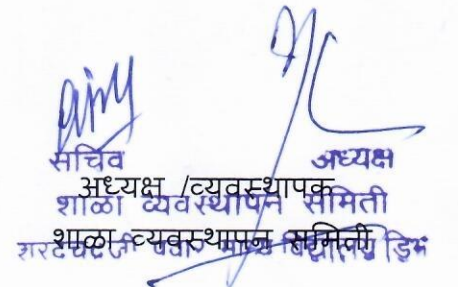 सचिव अध्यक्ष
अध्यक्ष /व्यवस्थापक
शाळा व्यवस्थापन समिती
शाळा व्यवस्थापन समिती
शरदचंद्रजी पवार